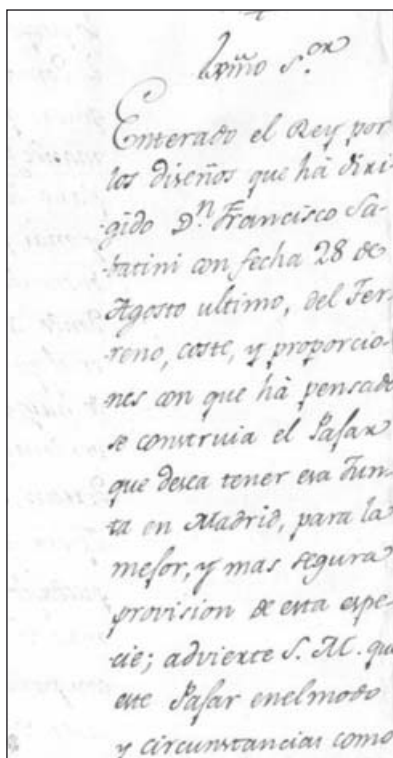 Exmo S.or
Enterado el Rey por
los diseños que hà diri-
gido D.n Francisco Sa-
batini con fecha 28 de
Agosto ultimo, del Ter-
reno, coste, y proporcio-
nes con que hà pensado
se construia el Pajar
que desea tener esa Jun-
ta en Madrid, para la
mejor, y mas segura
provision de esta espe-
cie; advierte S. M. que
este Pajar enelmodo
y circunstancias como